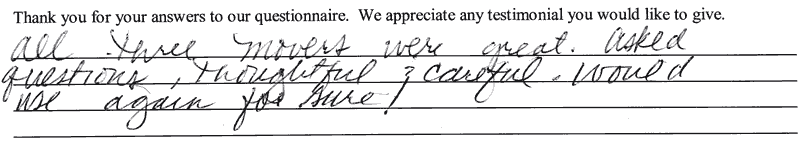 Thank you for your answers to our questionnaire.  We appreciate any testimonial you would like to give.
All three movers were great. Asked
questions, thoughtful & careful. Would
use again for sure!